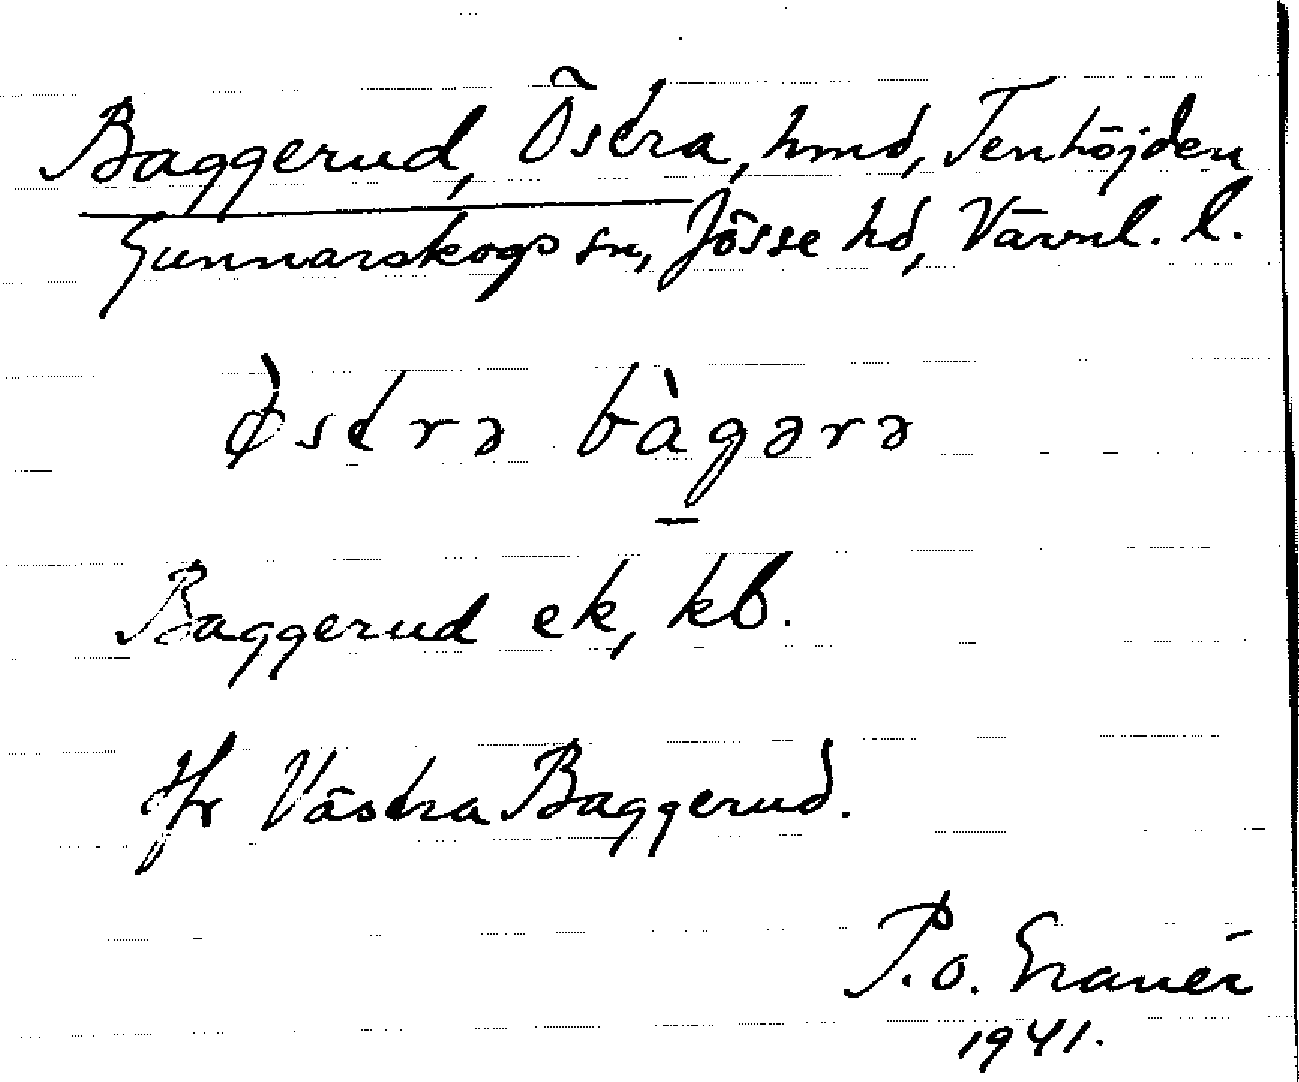 Baggerud, Östra, hmd, Tenhöjden
Gunnarskogs sn, Jösse hd, Värml. l.
ø̀strə bàgərə
Baggerud ek, kb.
Jfr Västra Baggerud.
P.O. Granér
1941.